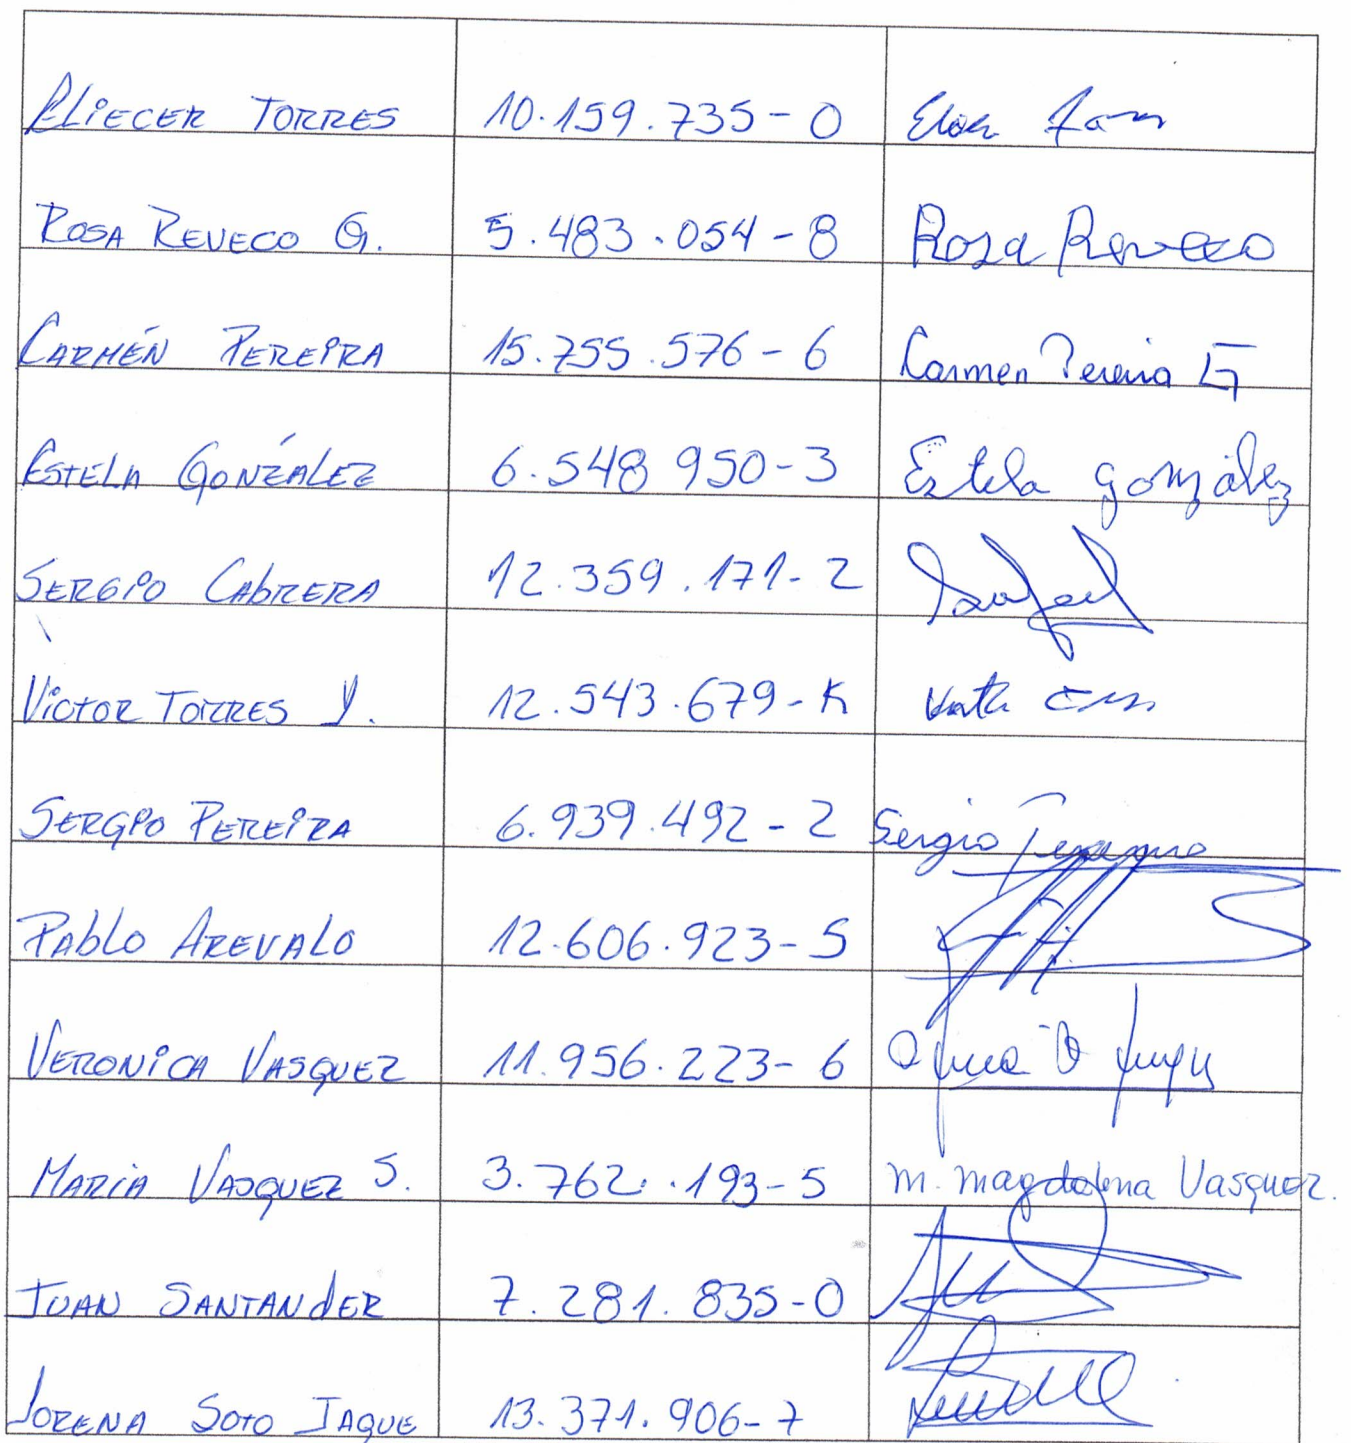 ELIECER TORRES 10.159.735-0
ROSA REVECO G. 5.483.054-8 Rosa Reveco
CARMÉN PEREIRA 15.755.576-6 Carmen Pereira G
ESTELA GONZÁLEZ 6.548 950-3 Estela González
SERGIO CABRERA 12.359.171-2
VICTOR TORRES Y. 12.543.679-K
SERGIO PEREIRA 6.939.492-2 Sergio Pereira
PABLO AREVALO 12.606.923-5
VERONICA VASQUEZ 11.956.223-6
MARIA VASQUEZ S. 3.762.193-5 M. Magdalena Vasquez.
JUAN SANTANDER 7.281.835-0
LORENA SOTO JAQUE 13.371.906-7